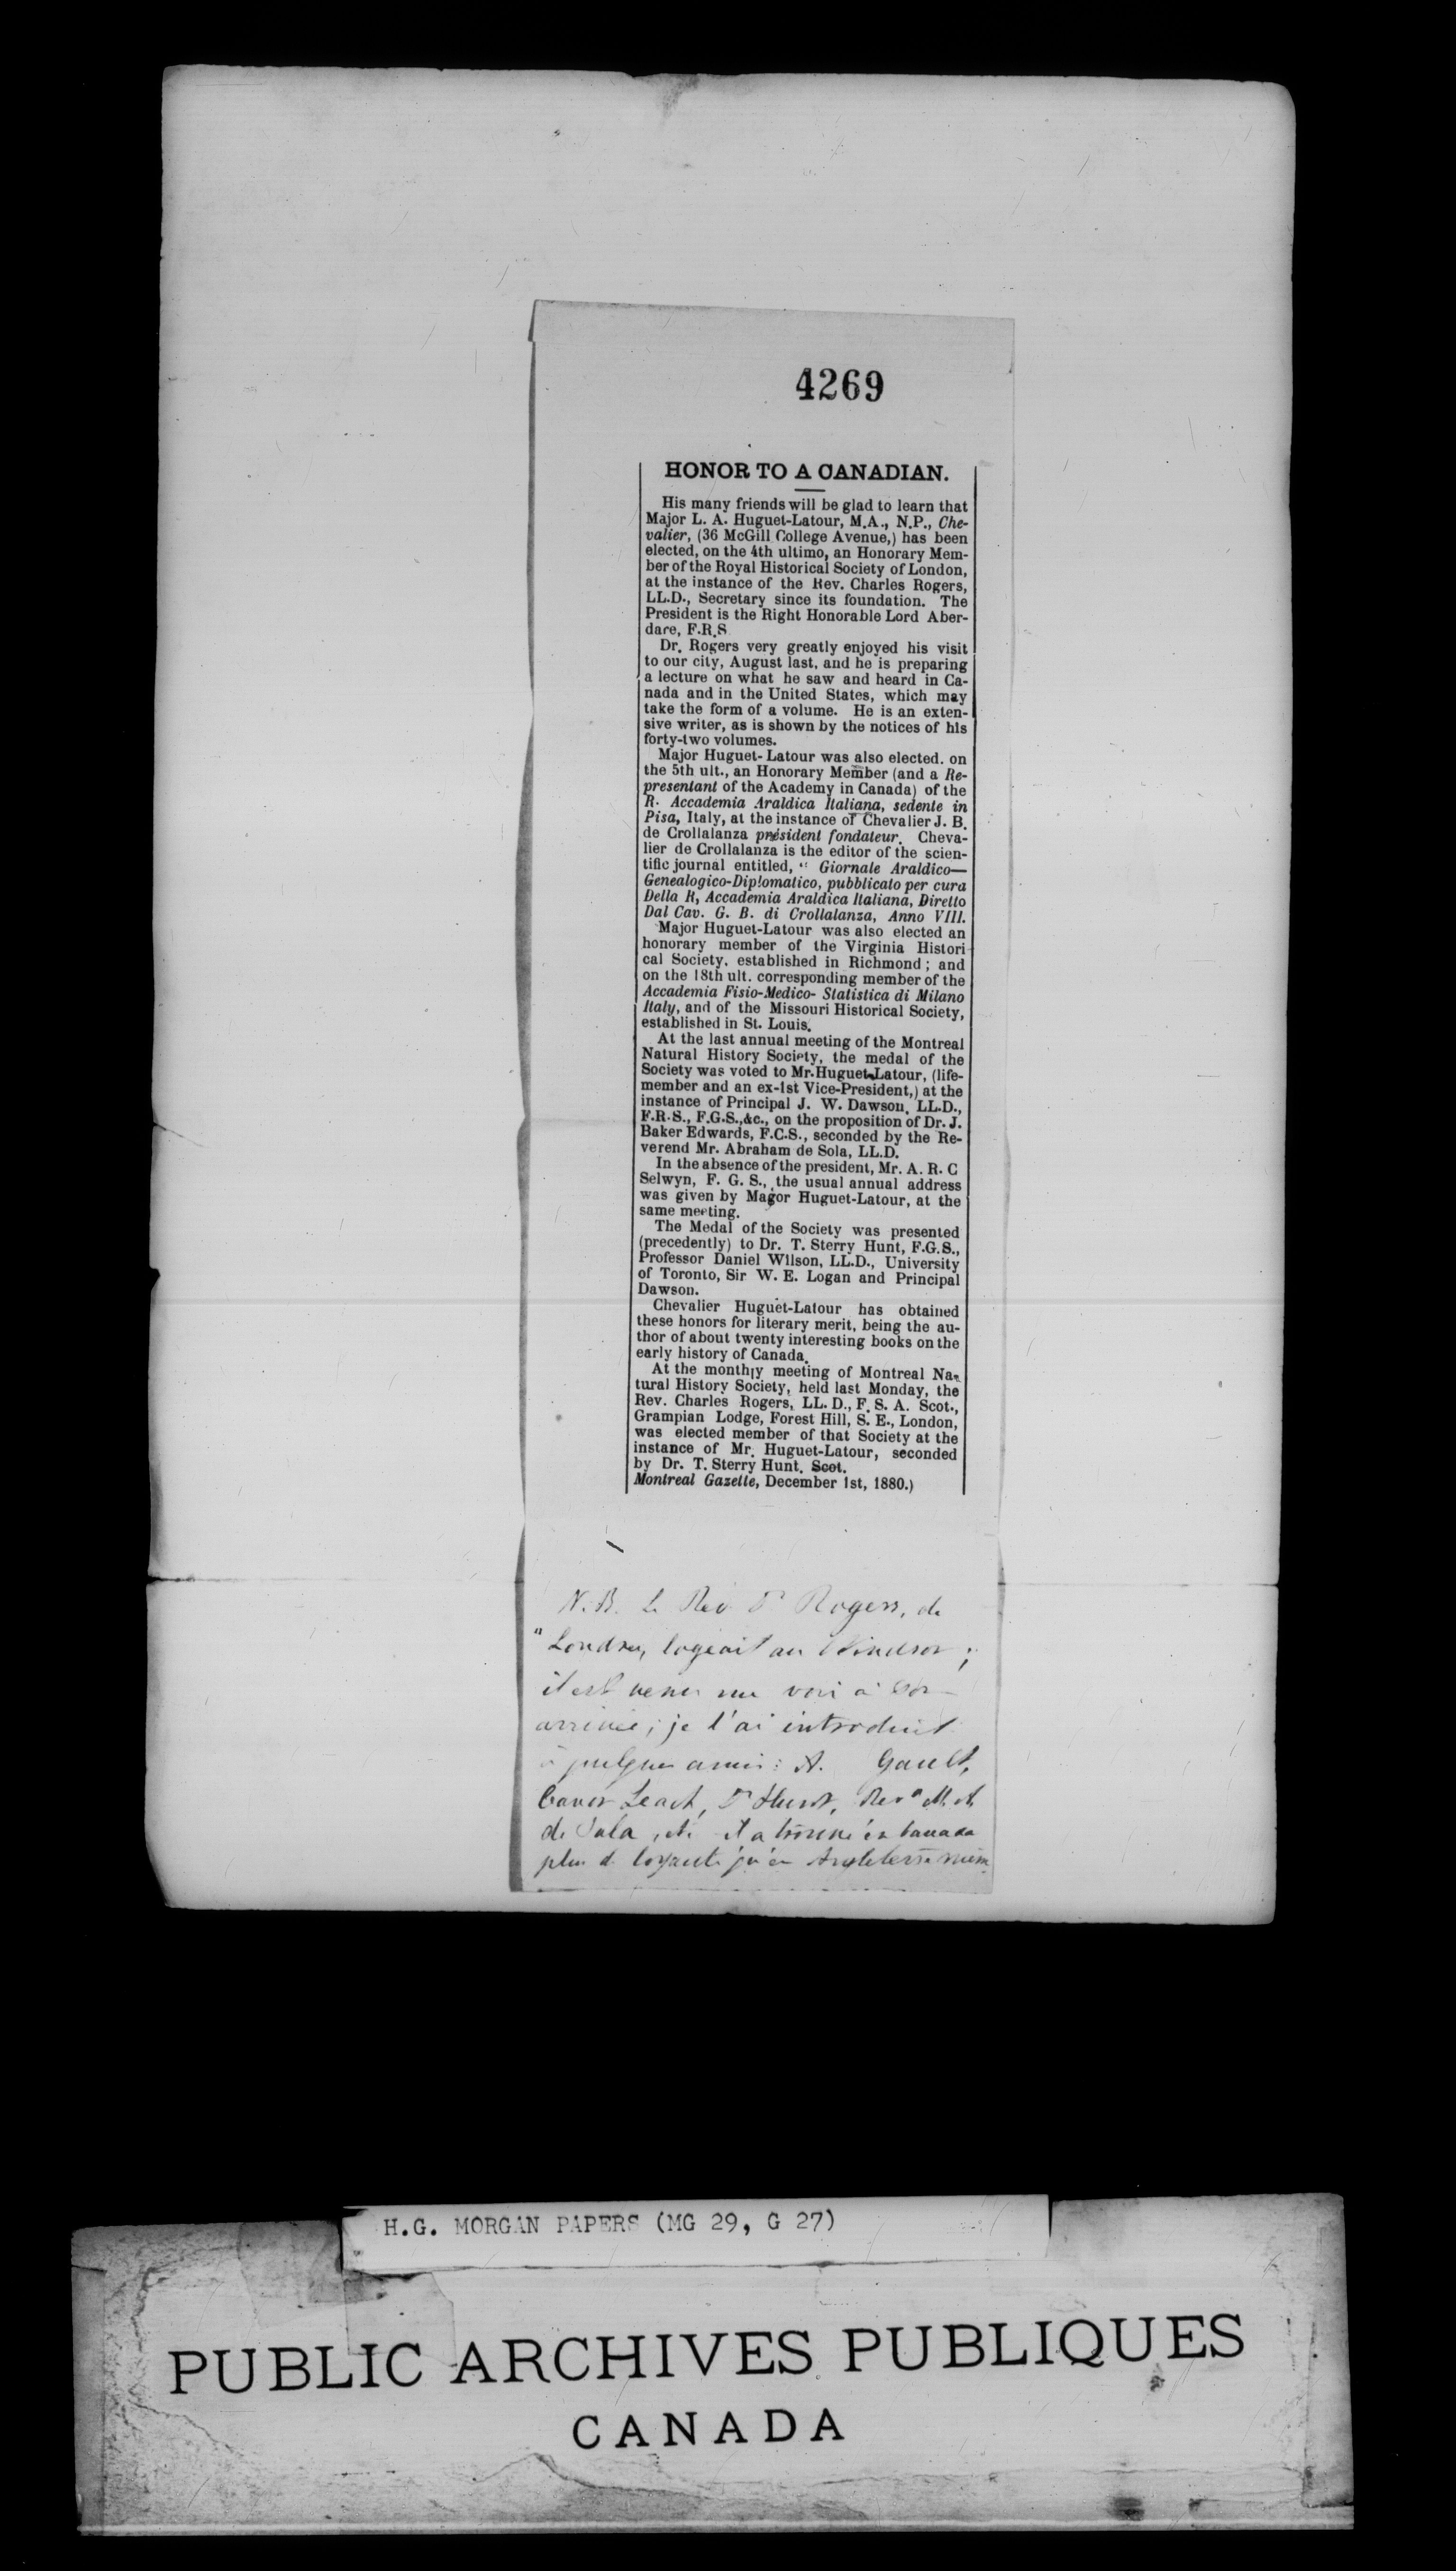 4269
HONOR TO A CANADIAN.
His many friends will be glad to learn that
Major L. A. Huguet-Latour, M.A., N.P., Che-
valier, (36 McGill College Avenue,) has been
elected, on the 4th ultimo, an Honorary Mem-
ber of the Royal Historical Society of London,
at the instance of the Rev. Charles Rogers,
LL.D., Secretary since its foundation. The
President is the Right Honorable Lord Aber-
dare, F.R.S
Dr. Rogers very greatly enjoyed his visit
to our city, August last, and he is preparing
a lecture on what he saw and heard in Ca-
nada and in the United States, which may
take the form of a volume. He is an exten-
sive writer, as is shown by the notices of his
forty-two volumes.
Major Huguet-Latour was also elected. on
the 5th ult., an Honorary Member (and a Re-
presentant of the Academy in Canada) of the
R. Accademia Araldica Italiana, sedente in
Pisa, Italy, at the instance of Chevalier J. B.
de Crollalanza président fondateur. Cheva-
lier de Crollalanza is the editor of the scien-
tific journal entitled, " Giornale Araldico—
Genealogico-Diplomatico, pubblicato per cura
Della R, Accademia Araldica Italiana, Diretto
Dal Cav. G. B. di Crollalanza, Anno VIII.
Major Huguet-Latour was also elected an
honorary member of the Virginia Histori
cal Society, established in Richmond ; and
on the 18th ult. corresponding member of the
Accademia Fisio-Medico- Statistica di Milano
Italy, and of the Missouri Historical Society,
established in St. Louis.
At the last annual meeting of the Montreal
Natural History Society, the medal of the
Society was voted to Mr. Huguet-Latour, (life-
member and an ex-1st Vice-President,) at the
instance of Principal J. W. Dawson, LL.D.,
F.R.S., F.G.S.,&c., on the proposition of Dr. J.
Baker Edwards, F.C.S., seconded by the Re-
verend Mr. Abraham de Sola, LL.D.
In the absence of the president, Mr. A. R. C
Selwyn, F. G. S., the usual annual address
was given by Magor Huguet-Latour, at the
same meeting.
The Medal of the Society was presented
(precedently) to Dr. T. Sterry Hunt, F.G.S.,
Professor Daniel Wilson, LL.D., University
of Toronto, Sir W. E. Logan and Principal
Dawson.
Chevalier Huguet-Latour has obtained
these honors for literary merit, being the au-
thor of about twenty interesting books on the
early history of Canada.
At the monthly meeting of Montreal Na-
tural History Society, held last Monday, the
Rev. Charles Rogers, LL. D., F. S. A. Scot.,
Grampian Lodge, Forest Hill, S. E., London,
was elected member of that Society at the
instance of Mr. Huguet-Latour, seconded
by Dr. T. Sterry Hunt. Scot.
Montreal Gazette, December 1st, 1880.)
N. B. Le Rev Dr Rogers, de
Londres, logeait au Windsor ;
il est venu me voir à son
arrivée ; je l'ai introduit
à quelques amis : A. Gault,
Canon Leach, Dr Hunt, Revd M. A.
de Sola, etc il a trouvé en Canada
plus de loyauté qu'en Angleterre même
H.G. MORGAN PAPERS (MG 29, G 27)
PUBLIC ARCHIVES PUBLIQUES
CANADA